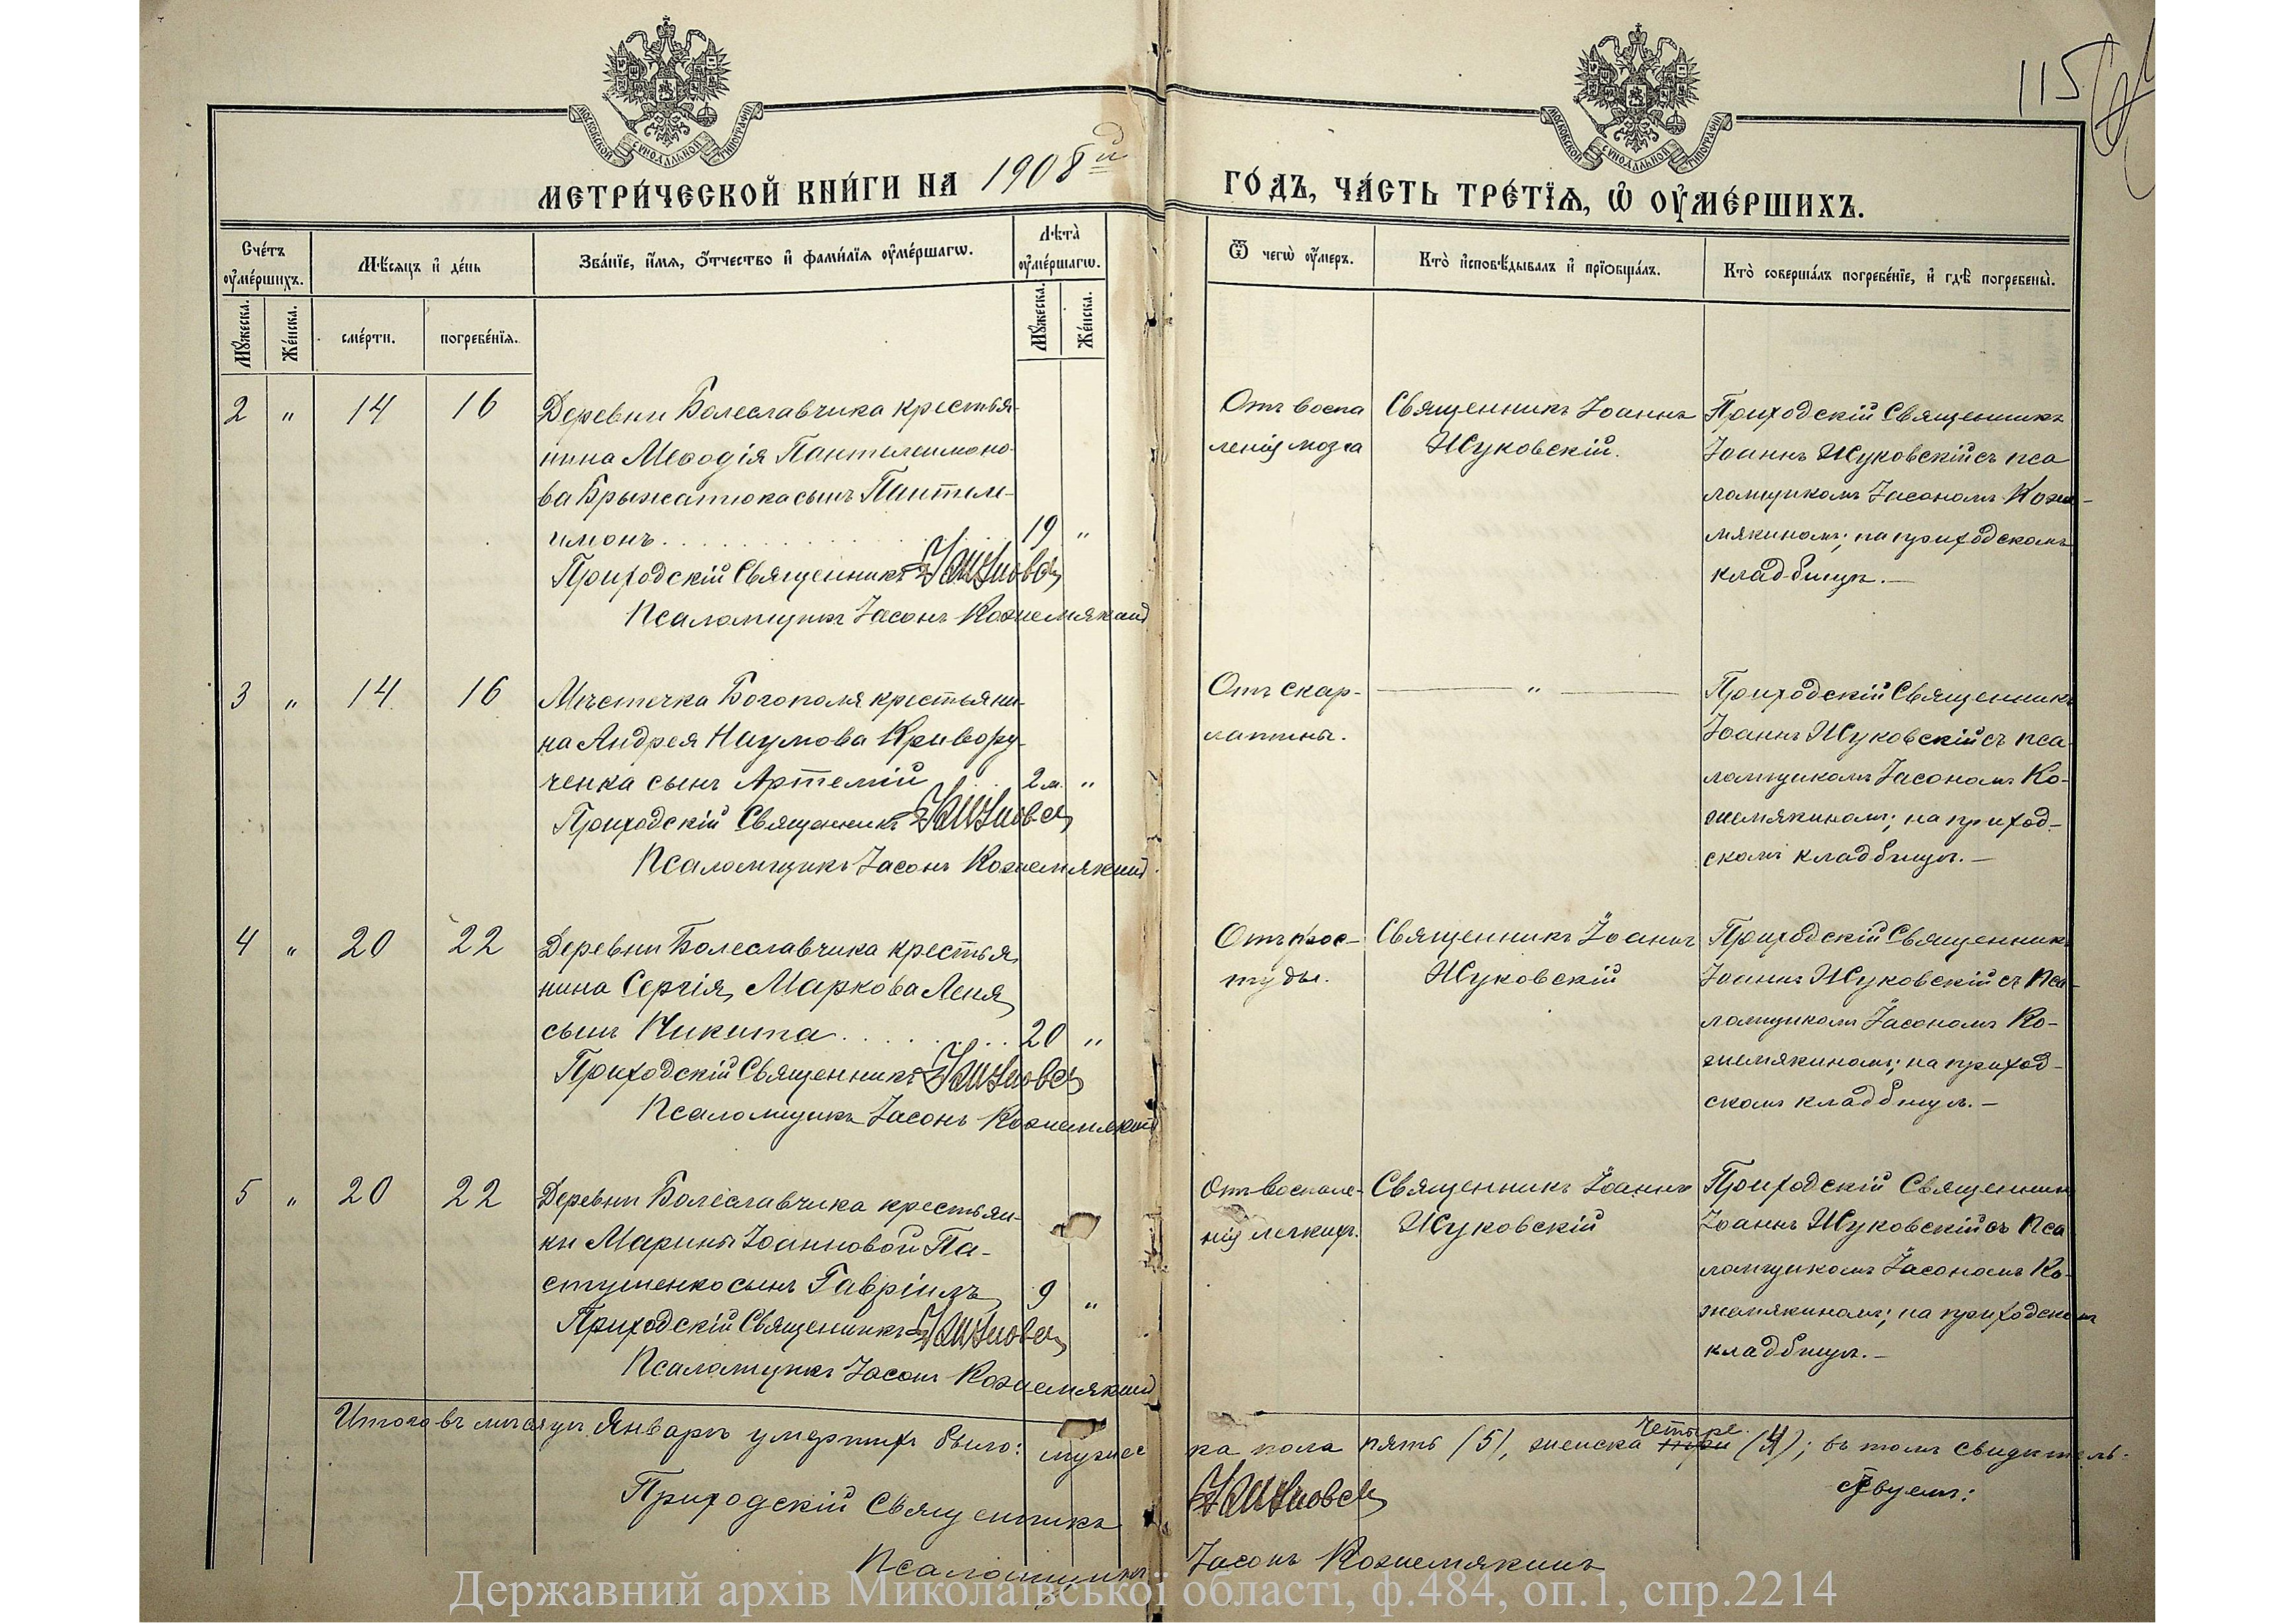 115
МОСКОВСКОЙ СѴНОДАЛЬНОЙ ТИПОГРАФІИ
МОСКОВСКОЙ СѴНОДАЛЬНОЙ ТИПОГРАФІИ
МЕТРИ́ЧЕСКОЙ КНИ́ГИ НА 1908й ГО́ДЪ, ЧА́СТЬ ТРЕ́ТЇѦ, Ѽ ОУ҆МЕ́РШИХЪ.
Сче́тъ оу҆ме́ршихъ.
Мꙋ́жеска.
Же́нска.
Мѣ́сяцъ и҆ де́нь
сме́рти.
погребе́нїѧ.
Зва́нїе, и҆́мѧ, о҆́тчество и҆ фами́лїѧ оу҆ме́ршагѡ.
Лѣта̀ оу҆ме́ршагѡ.
Мꙋ́жеска.
Же́нска.
Ѿ чегѡ̀ оу҆́меръ.
Кто̀ и҆сповѣ́дывалъ и҆ прїѻбща́лъ.
Кто̀ соверша́лъ погребе́нїе, и҆ гдѣ̀ погребены̀.
2 " 14 16
Деревни Болеславчика крестья-
нина Меѳодія Пантелеимоно-
ва Брыжатюка сынъ Пантеле-
имонъ. 19 "
Приходскій Священникъ
Псаломщикъ Іасонъ Кожемякинъ
Отъ воспа
ленія мозга
Священникъ Іоаннъ
Жуковскій.
Приходскій Священникъ
Іоаннъ Жуковскій съ пса
ломщикомъ Іасономъ Коже-
мякиномъ; на приходскомъ
кладбищѣ.—
3 " 14 16
Мѣстечка Богополя крестьяни-
на Андрея Наумова Кривору-
ченка сынъ Артемій 2 м. "
Приходскій Священникъ
Псаломщикъ Іасонъ Кожемякинъ
Отъ скар-
латины.
— " —
Приходскій Священникъ
Іоаннъ Жуковскій съ пса-
ломщикомъ Іасономъ Ко-
жемякиномъ; на приход-
скомъ кладбищѣ.—
4 " 20 22
Деревни Болеславчика крестья-
нина Сергія Маркова Леня
сынъ Никита 20 "
Приходскій Священникъ
Псаломщикъ Іасонъ Кожемякинъ
Отъ прос-
туды.
Священникъ Іоаннъ
Жуковскій
Приходскій Священникъ
Іоаннъ Жуковскій съ Пса-
ломщикомъ Іасономъ Ко-
жемякиномъ; на приход-
скомъ кладбищѣ.—
5 " 20 22
Деревни Болеславчика крестьян-
ки Марины Іоанновой Па-
стушенко сынъ Гавріилъ 9 "
Приходскій Священникъ
Псаломщикъ Іасонъ Кожемякинъ
Отъ воспале-
нія легкихъ.
Священникъ Іоаннъ
Жуковскій
Приходскій Священникъ
Іоаннъ Жуковскій съ Пса
ломщикомъ Іасономъ Ко-
жемякиномъ; на приходскомъ
кладбищѣ.—
Итого въ мѣсяцѣ Январѣ умершихъ было: мужес ка пола пять (5), женска три четыре (4); въ томъ свидѣтель-
ствуемъ:
Приходскій Священникъ
Псаломщикъ Іасонъ Кожемякинъ
Державний архів Миколаївської області, ф.484, оп.1, спр.2214